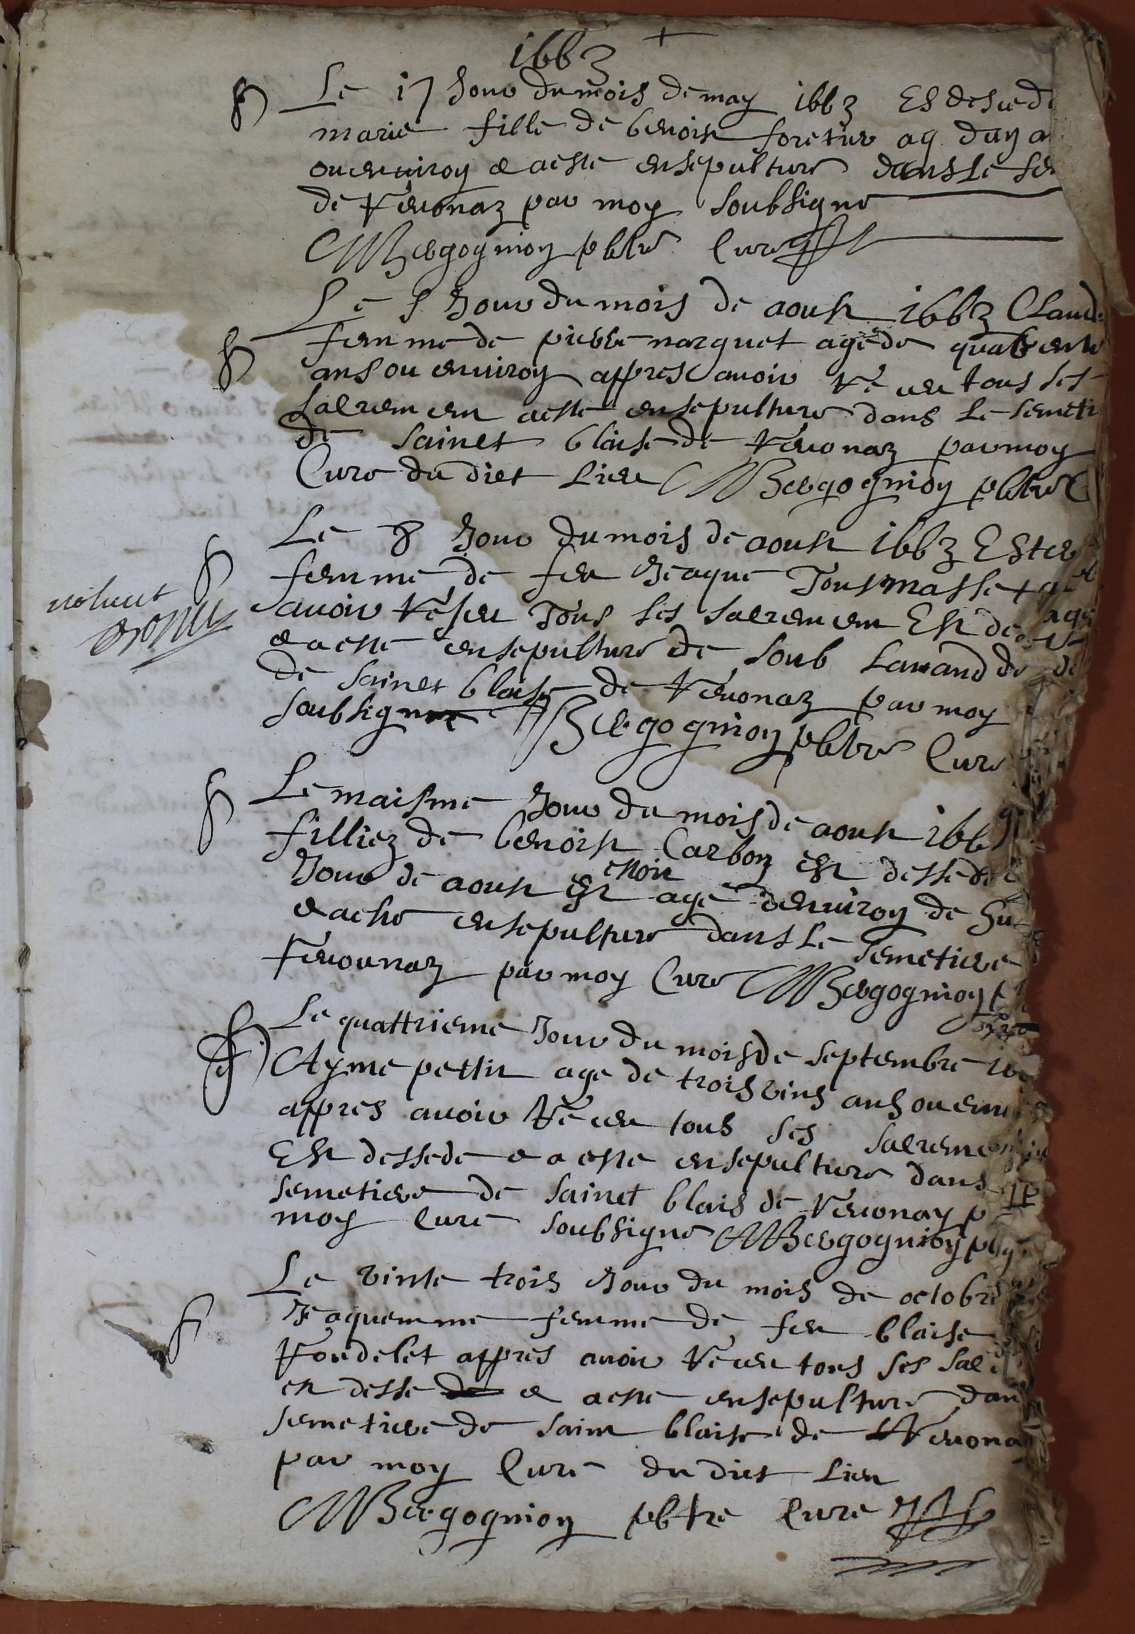 1663
Le 17 Jour du mois de may 1663 Est desede
marie fille de benoist foretier ag d'un a
ou enuiron & a este ensepulturé dans le sem
de Veronaz par moy soubsigne
Bergognion pbtre Cure
Le 5 Jour du mois de aoust 1663 Claud
femme de pierre marquet agé de quatrente
ans ou enuiron appres auoir Receu tous ses
sacremen a este ensepulturé dans le semeti
de sainct blaise de Veronaz par moy
Cure du dict Lieu Bergognion pbtre C
Le 8 Jour du mois de aoust 1663 Ester
femme de feu Jeaque Tousmasset
auoir Reseu Tous ses sacremen Est de
& a este ensepulturé de soub Lauand de
de sainct blaise de Veronaz par moy
soubsigne Bergognion pbtre Cure
Le maisme Jour du mois de aoust 166
filliez de benoist Carbon est dessede
Jour de aoust est agé d'enuiron de
& a esté ensepulturé dans Le semetiere
Veronnaz par moy Cure Bergognion
Le quattrieme Jour du mois de septembre
Ayme pettit age de trois vins ans ou enui
appres auoir Receu tous ses sacremen
Est dessede & a este ensepulture dans
semetiere de sainct blais de Veronay p
moy Cure soubsigne Bergognion
Le vinte trois Jour du mois de octobre
Jaquemme femme de feu blaise
Rondelet appres auoir Receu tous ses sac
est desse & a este ensepulturé dan
semetiere de saint blaise de Verona
par moy Cure du dict Lieu
Bergognion pbtre Cure